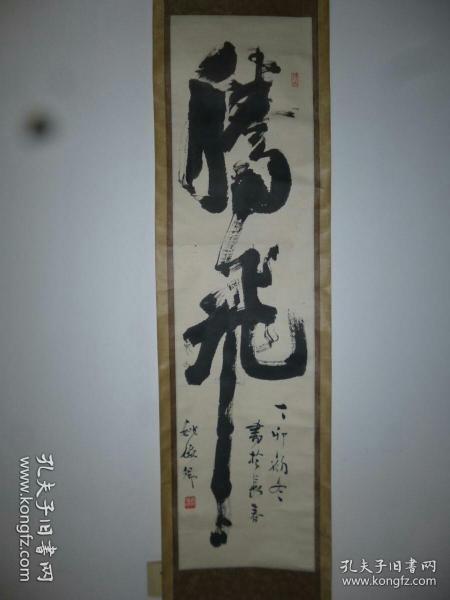 騰飛
丁卯初冬
書於長春
姚俊卿
孔夫子旧书网
www.kongfz.com
孔夫子旧书网
www.kongfz.com